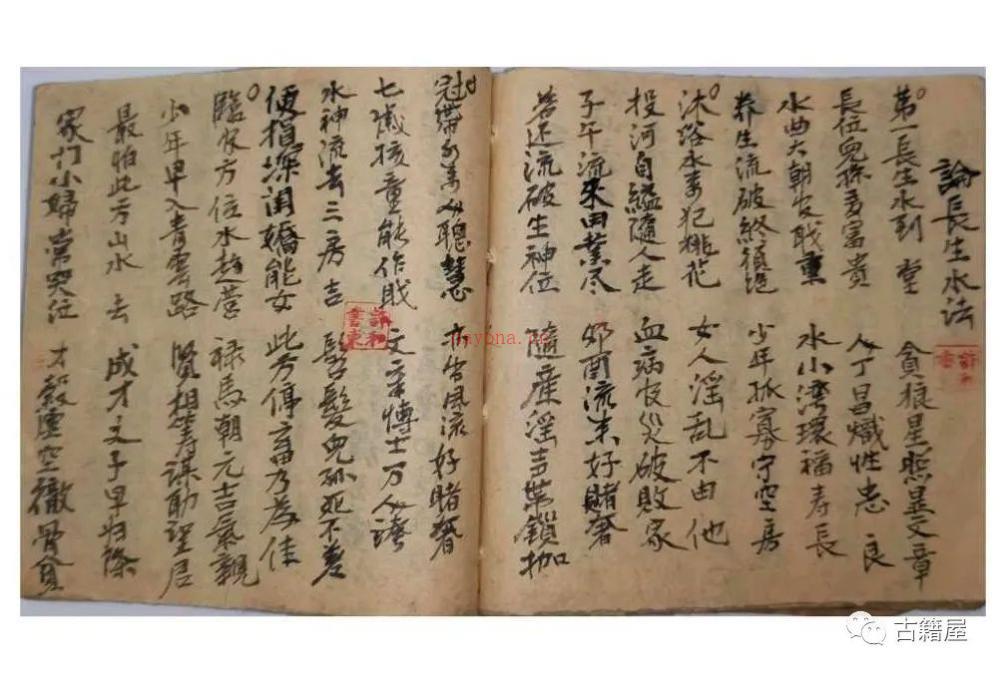 論長生水法
第一長生水到堂 貪狼星照显文章
長位兒孫多富貴 人丁昌熾性忠良
水曲大朝官职重 水小湾環福寿長
养生流破終須絕 少年孤寡守空房
沐浴水來犯桃花 女人淫乱不由他
投河自縊隨人走 血病官災破敗家
子午流來田業尽 卯酉流来好賭奢
若还流破生神位 隨産淫声帶鎖枷
冠帶水來人聰慧 亦出風流好賭奢
七歲孩童能作賦 文章博士万人誇
水神流去三房吉 髫髮兒孙死不差
便損深闺嬌能女 此方停畜乃為佳
臨官方位水趋营 禄馬朝元吉氣親
少年早入青雲路 賢相筹謀助聖君
最怕此方山水去 成才之子早归陰
家门小婦常哭泣 才穀虛空徹骨貧
古籍屋